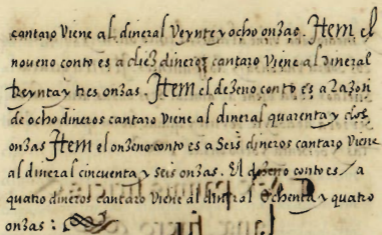 cantaro Viene al dineral Veynte y ocho onzas. Item el
noueno conto es a diez dineros cantaro Viene al dineral
treynta y tres onzas. Item el dezeno conto es a Razon
de ocho dineros cantaro Viene al dineral quarenta y dos
onzas Item el onzeno conto es a Seis dineros cantaro Viene
al dineral cincuenta y seis onzas. El dozeno conto es / a
quatro dineros cantaro Viene al dineral ochenta y quatro
onzas :